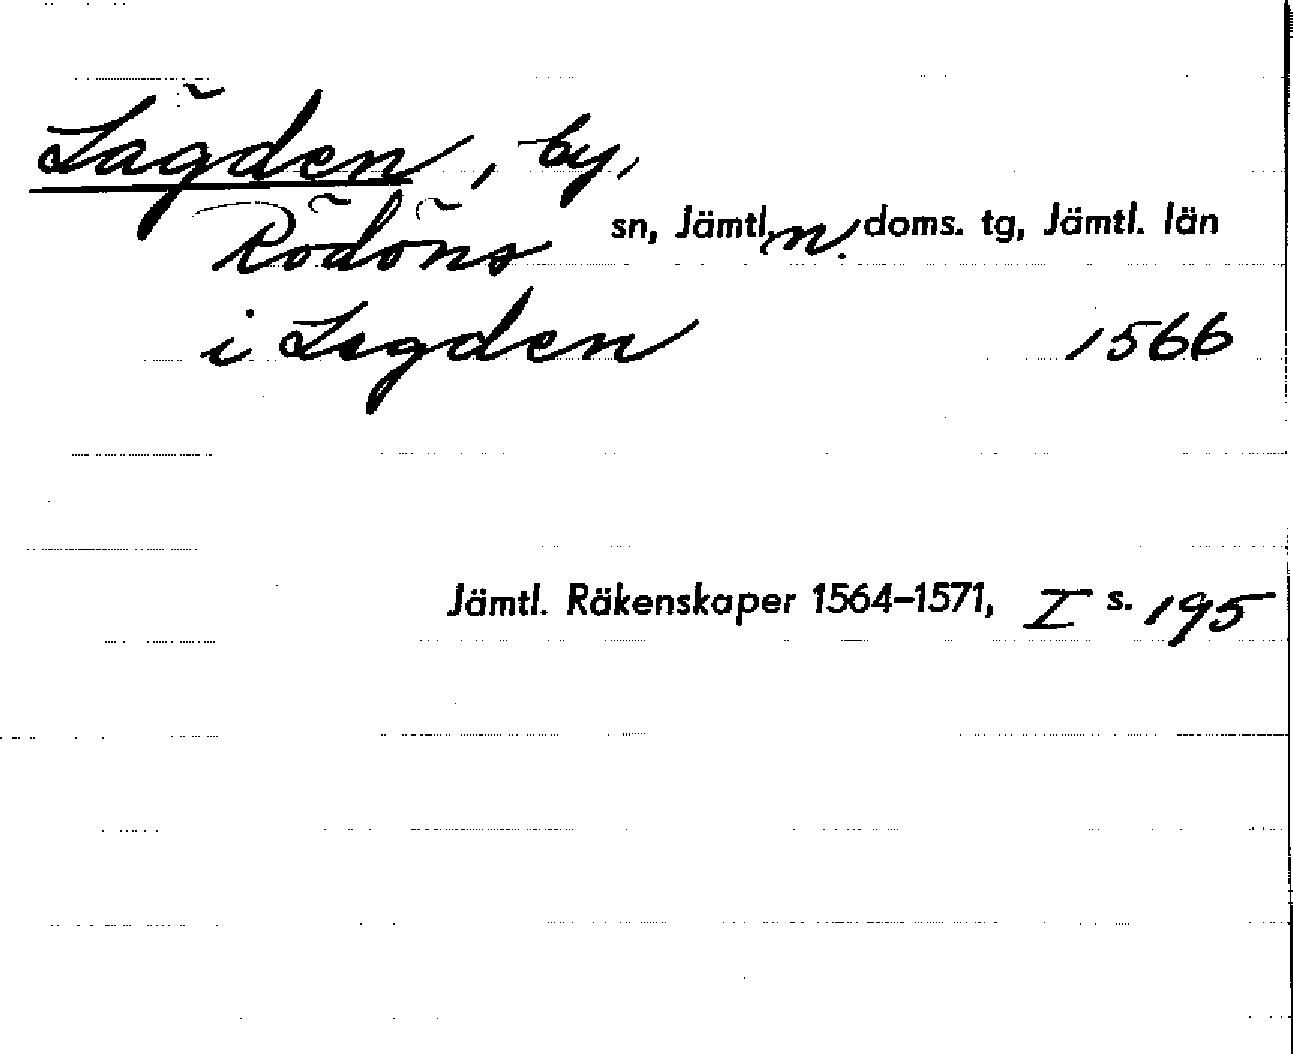 Lägden, by,
Rödöns sn, Jämtl, n. doms. tg, Jämtl. län
i Legden 1566
Jämtl. Räkenskaper 1564-1571, I s. 195